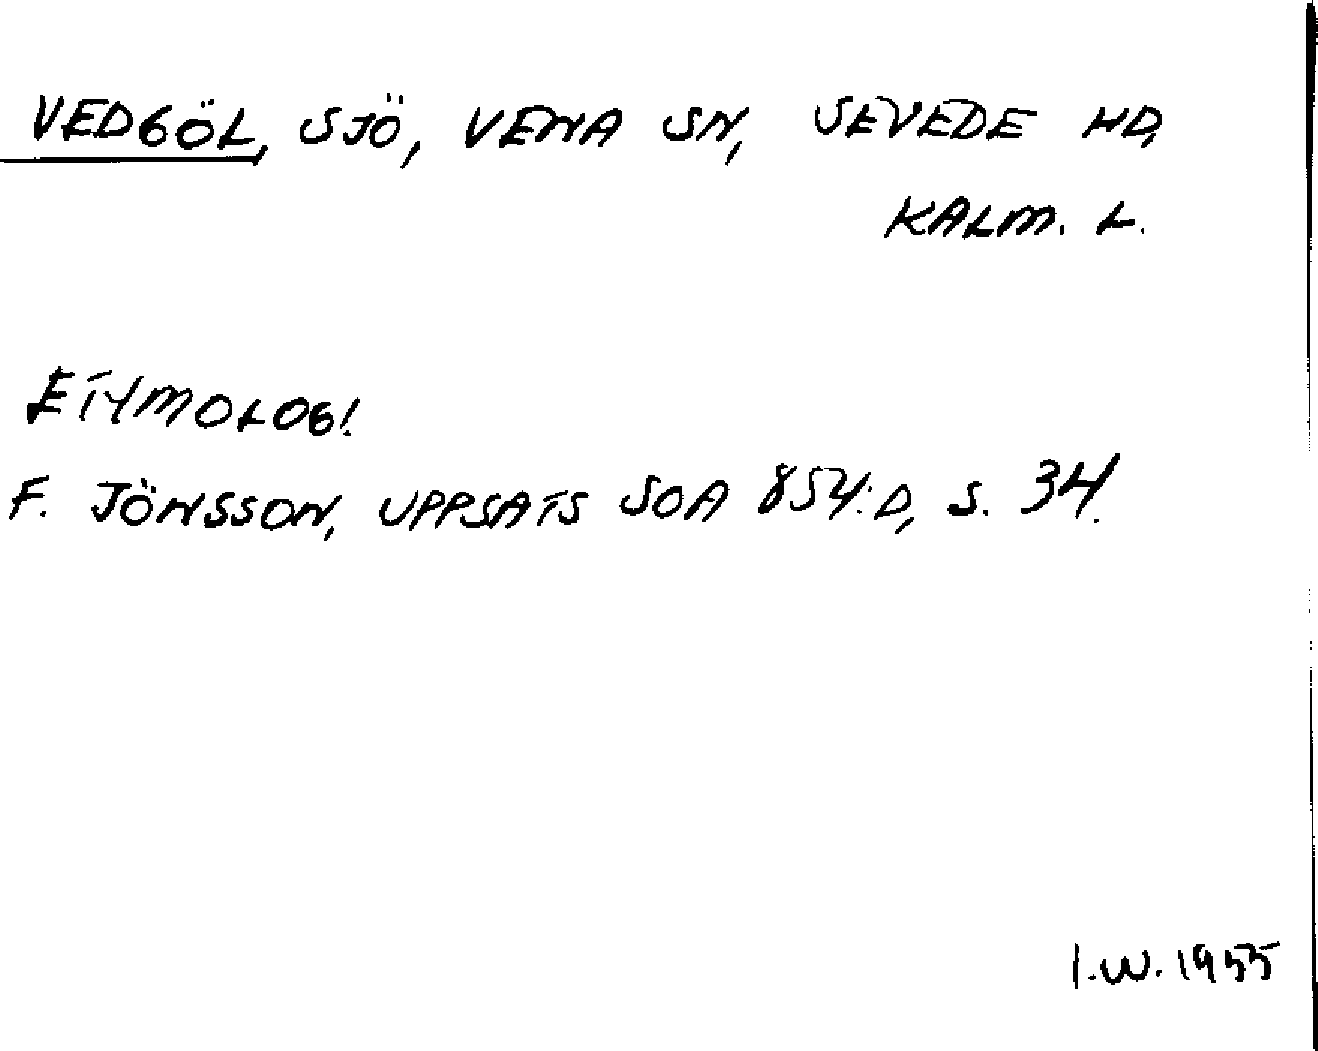 VEDGÖL, SJÖ, VENA SN, SEVEDE HD,
KALM. L.
ETYMOLOGI.
F. JÖNSSON, UPPSATS SOA 854:D, S. 34.
I.W. 1955